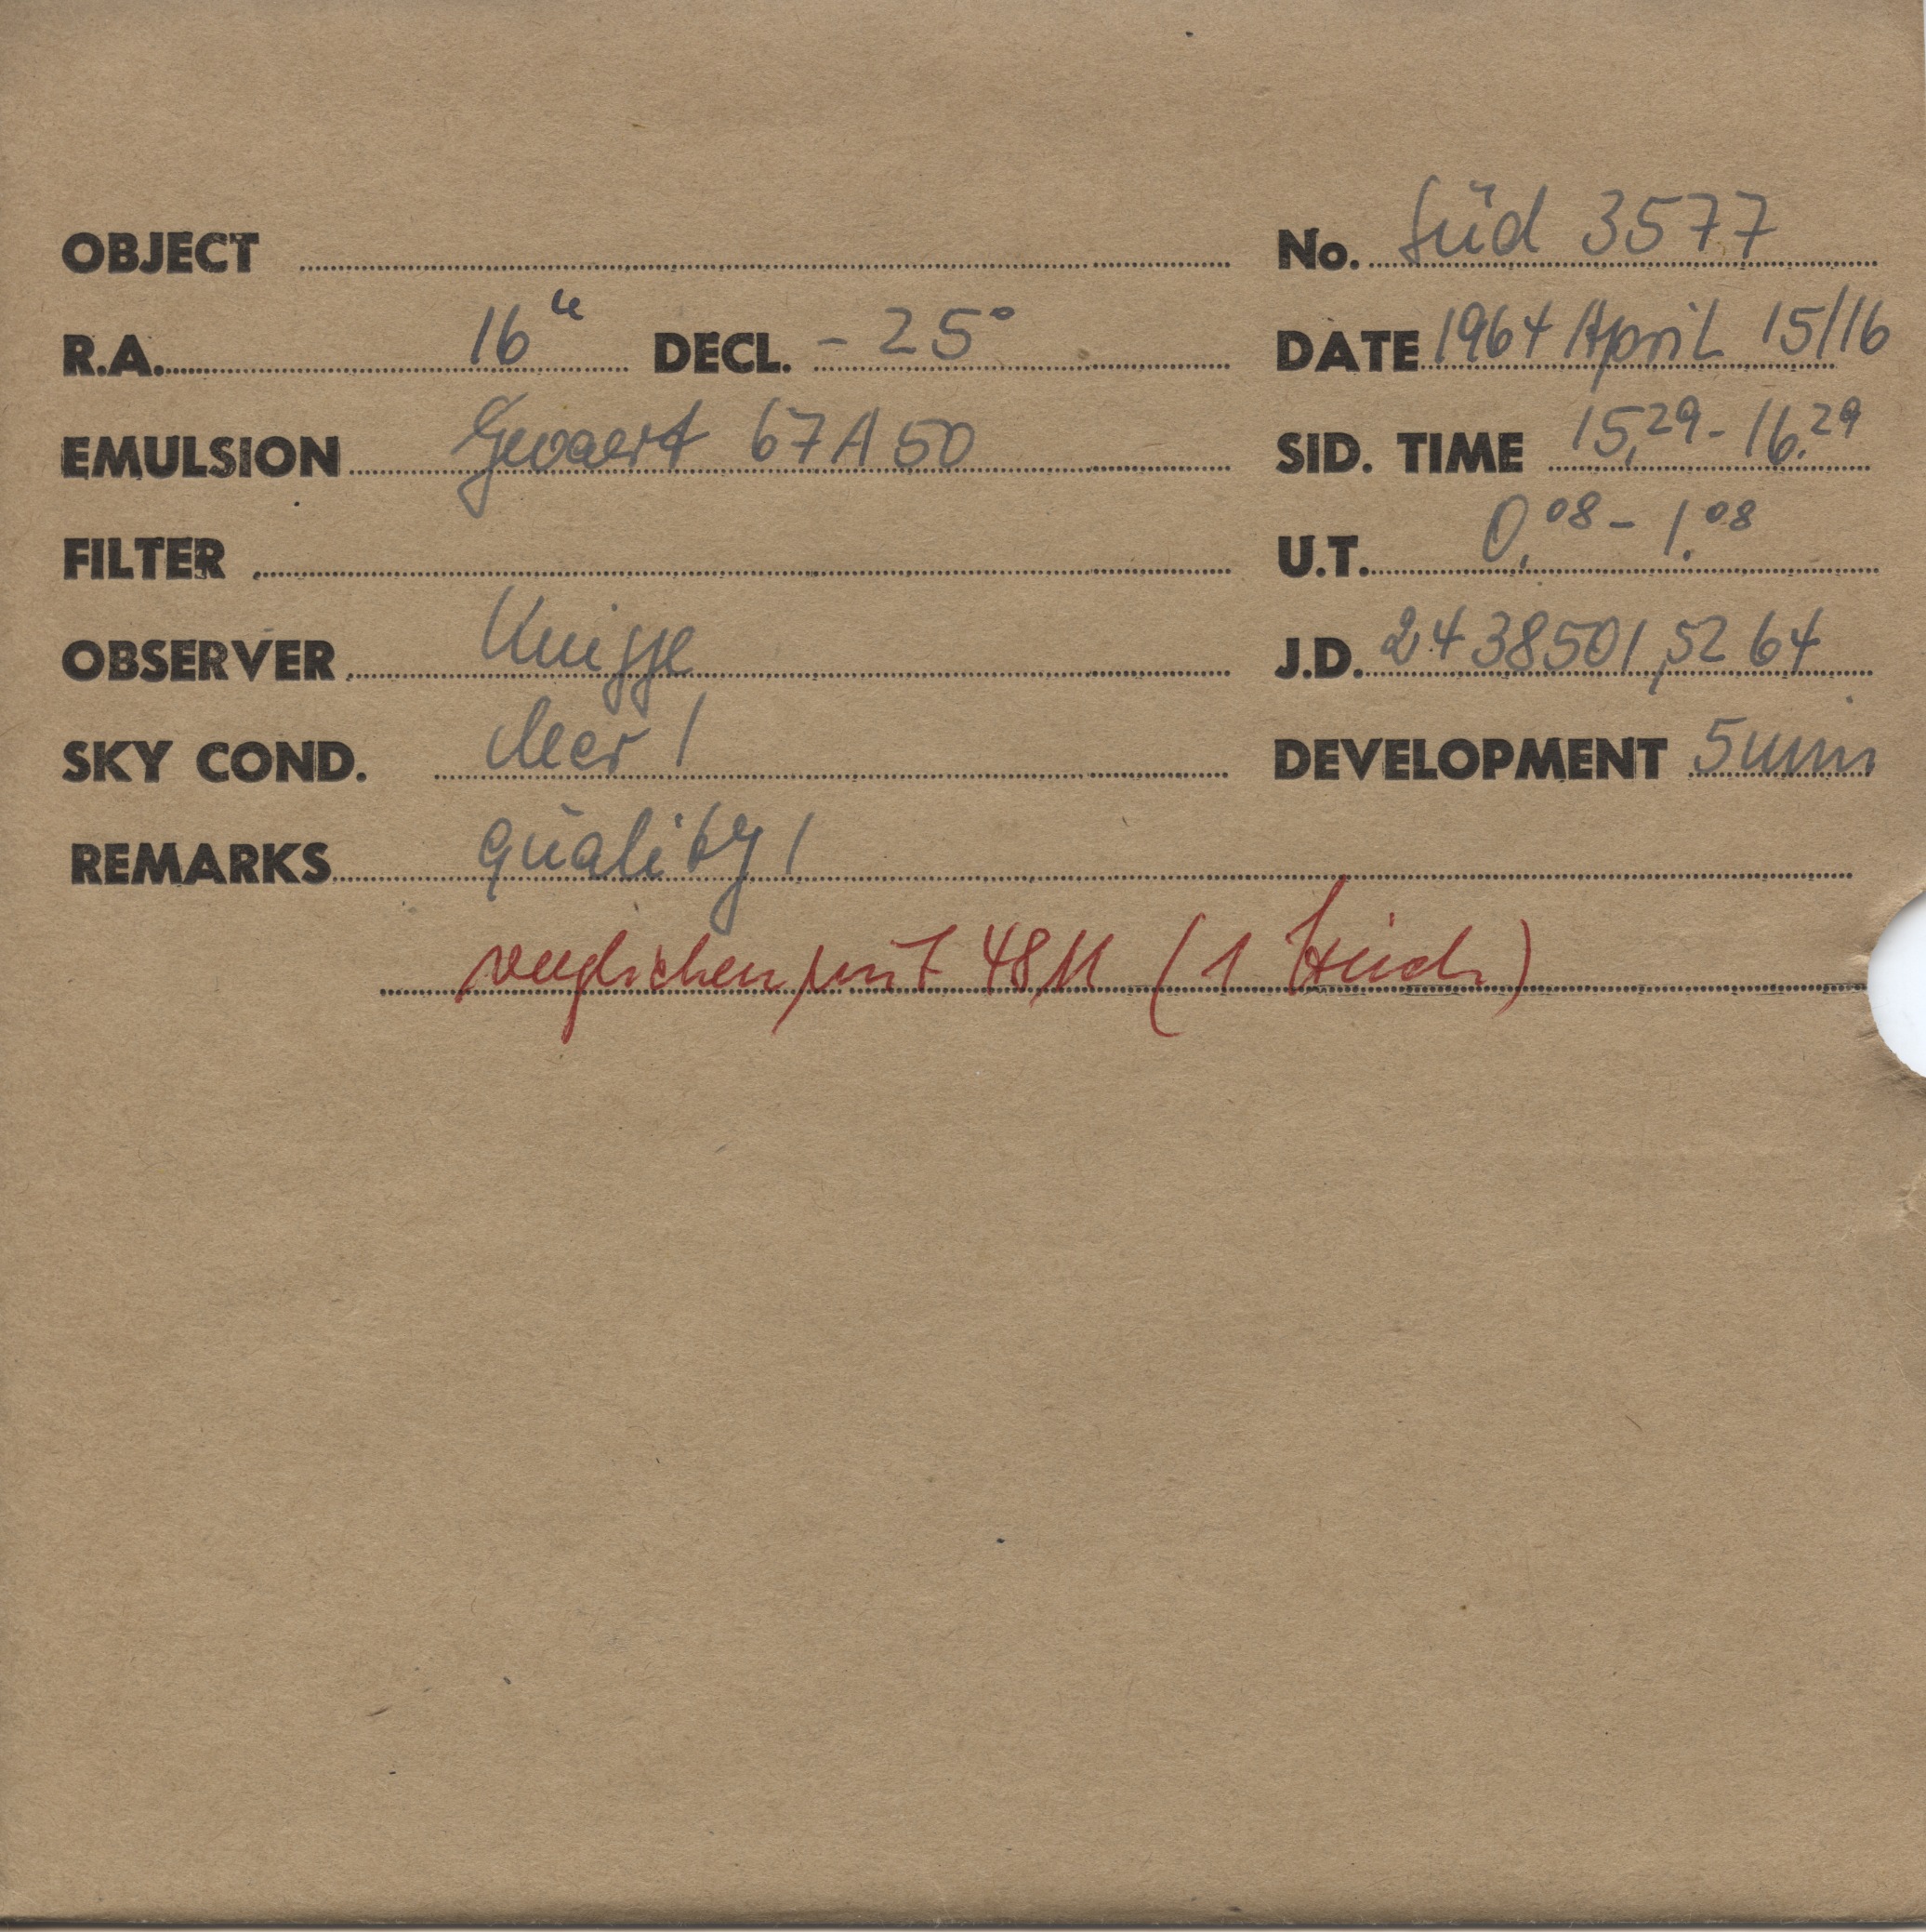 OBJECT No. Süd 3577
R.A. 16ʰ DECL. - 25° DATE 1964 April 15/16
EMULSION Gevaert 67A50 SID. TIME 15,29 - 16.29
FILTER U.T. 0,08 - 1.08
OBSERVER Knigge J.D. 2438501,5264
SKY COND. clear 1 DEVELOPMENT 5min
REMARKS quality 1
verglichen mit 4811 (1 )